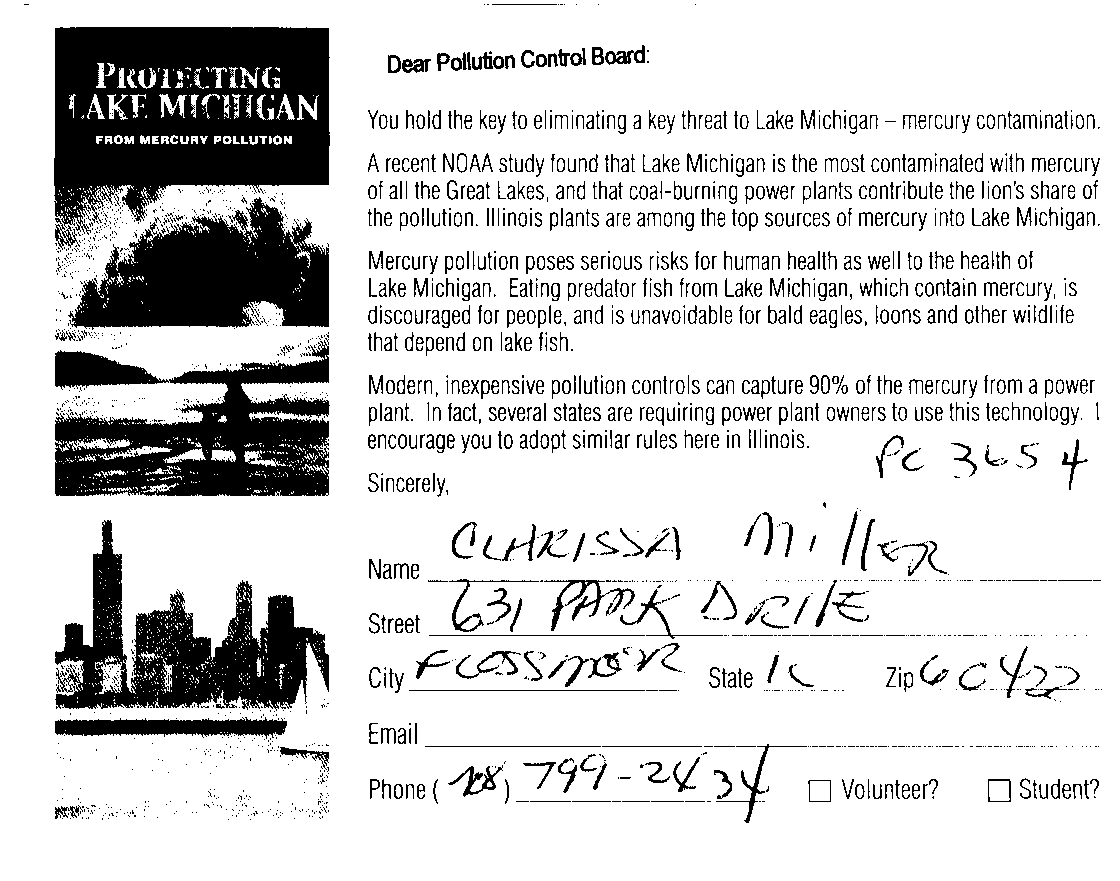 PROTECTING
LAKE MICHIGAN
FROM MERCURY POLLUTION
Dear Pollution Control Board:
You hold the key to eliminating a key threat to Lake Michigan – mercury contamination.
A recent NOAA study found that Lake Michigan is the most contaminated with mercury
of all the Great Lakes, and that coal-burning power plants contribute the lion's share of
the pollution. Illinois plants are among the top sources of mercury into Lake Michigan.
Mercury pollution poses serious risks for human health as well to the health of
Lake Michigan. Eating predator fish from Lake Michigan, which contain mercury, is
discouraged for people, and is unavoidable for bald eagles, loons and other wildlife
that depend on lake fish.
Modern, inexpensive pollution controls can capture 90% of the mercury from a power
plant. In fact, several states are requiring power plant owners to use this technology. I
encourage you to adopt similar rules here in Illinois.
PC 3654
Sincerely,
Name CLARISSA MillER
Street 631 PARK DRIVE
City FLOSSMOOR State IL Zip 60422
Email
Phone (708) 799-2434 Volunteer? Student?